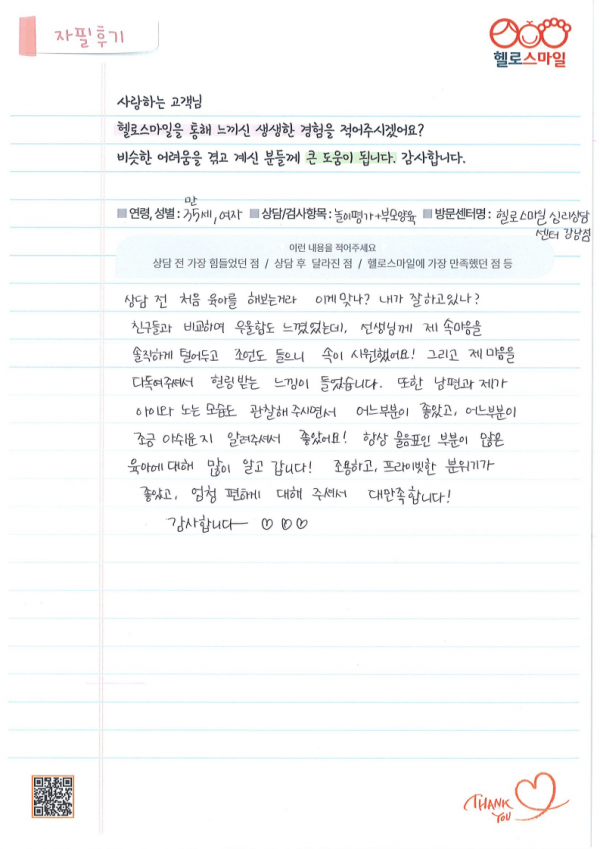 자필후기
헬로스마일
사랑하는 고객님
헬로스마일을 통해 느끼신 생생한 경험을 적어주시겠어요?
비슷한 어려움을 겪고 계신 분들께 큰 도움이 됩니다. 감사합니다.
연령, 성별 : 만 35세, 여자 상담/검사항목 : 놀이평가+부모양육 방문센터명 : 헬로스마일 심리상담
센터 강남점
이런 내용을 적어주세요
상담 전 가장 힘들었던 점 / 상담 후 달라진 점 / 헬로스마일에 가장 만족했던 점 등
상담 전 처음 육아를 해보는거라 이게맞나? 내가 잘하고있나?
친구들과 비교하며 우울함도 느꼈었는데, 선생님께 제 속마음을
솔직하게 털어두고 조언도 들으니 속이 시원했어요! 그리고 제 마음을
다독여주셔서 힐링받는 느낌이 들었습니다. 또한 남편과 제가
아이와 노는 모습도 관찰해주시면서 어느부분이 좋았고, 어느부분이
조금 아쉬운지 알려주셔서 좋았어요! 항상 물음표인 부분이 많은
육아에대해 많이 알고 갑니다! 조용하고, 프라이빗한 분위기가
좋았고, 엄청 편하게 대해 주셔서 대만족합니다!
감사합니다~ ♡♡♡
THANK
YOU